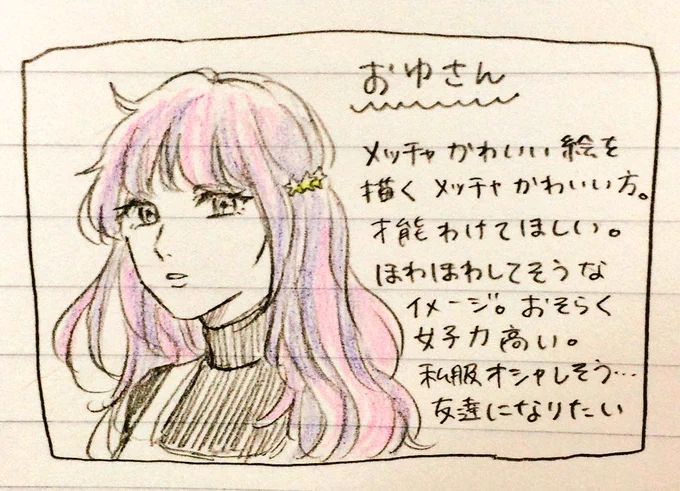 おゆさん
メッチャかわいい絵を
描くメッチャかわいい方。
才能わけてほしい。
ほわほわしてそうな
イメージ。おそらく
女子力高い。
私服オシャしそう…
友達になりたい